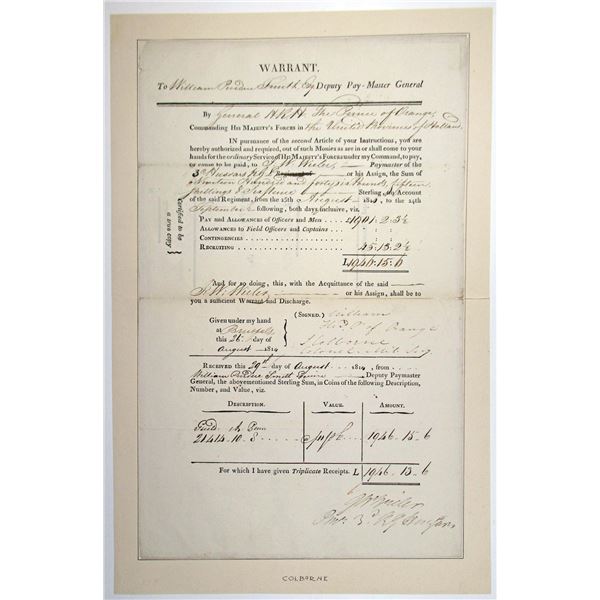 WARRANT.
To William Purdue Smith Esq Deputy Pay-Master General
By General H.R.H. The Prince of Orange,
Commanding His Majesty's Forces in the United Provinces of Holland
IN pursuance of the second Article of your Instructions, you are
hereby authorized and required, out of such Monies as are or shall come to your
hands for the ordinary Service of His Majesty's Forces under my Command, to pay,
or cause to be paid, to Paymaster of the
3d Hussars or his Assign, the Sum of
Nineteen Hundred and forty six Pounds, fifteen
Shillings & Sixpence Sterling, on Account
of the said Regiment, from the 25th August 1814, to the 24th
September following, both days inclusive, viz.
Pay and Allowances of Officers and Men £1901.2.3½
Allowances to Field Officers and Captains
Contingencies
Recruiting 45.13.2½
£1946.15.6
Certified to be
a true copy
And for so doing, this, with the Acquittance of the said
or his Assign, shall be to
you a sufficient Warrant and Discharge.
Given under my hand
at Brussels
this 26 day of
August 1814
(Signed.) William
P. of Orange
J Colborne
Colonel & Mil. Sec.
Received this 29th day of August 1814, from
William Purdue Smith Esquire Deputy Paymaster
General, the abovementioned Sterling Sum, in Coins of the following Description,
Number, and Value, viz.
Description. Value. Amount.
21414.10.8 1946.15.6
For which I have given Triplicate Receipts. L 1946.15.6
COLBORNE